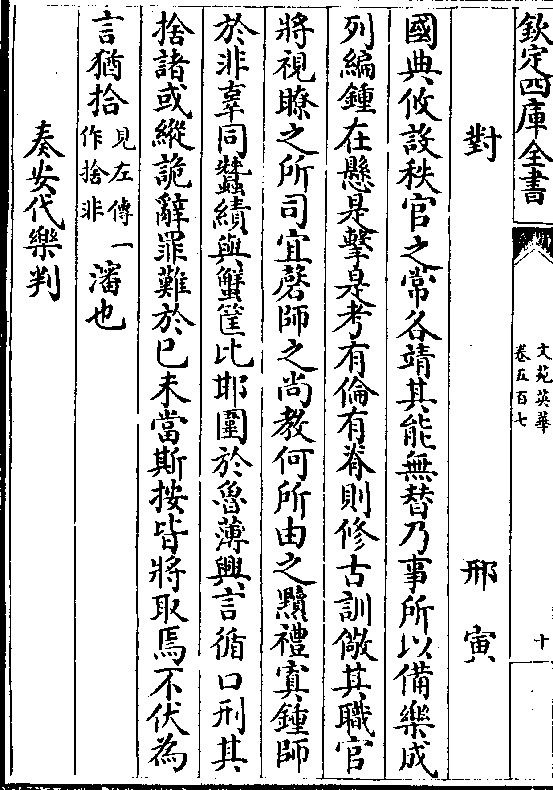 欽定四庫全書
文苑英華
卷五百七
十
對
邢寅
國典攸設秩官之常各靖其能無替乃事所以備樂成
列編鍾在懸是擊是考有倫有脊則修古訓儆其職官
將視瞭之所司宜磬師之尚教何所由之黷禮寘鍾師
於非辜同蠶績與蟹筐比邯圍於魯薄興言循口刑其
捨諸或縱詭辭罪難於已未當斯按皆將取焉不伏為
言猶拾見左傳一作捨非瀋也
奏安代樂判